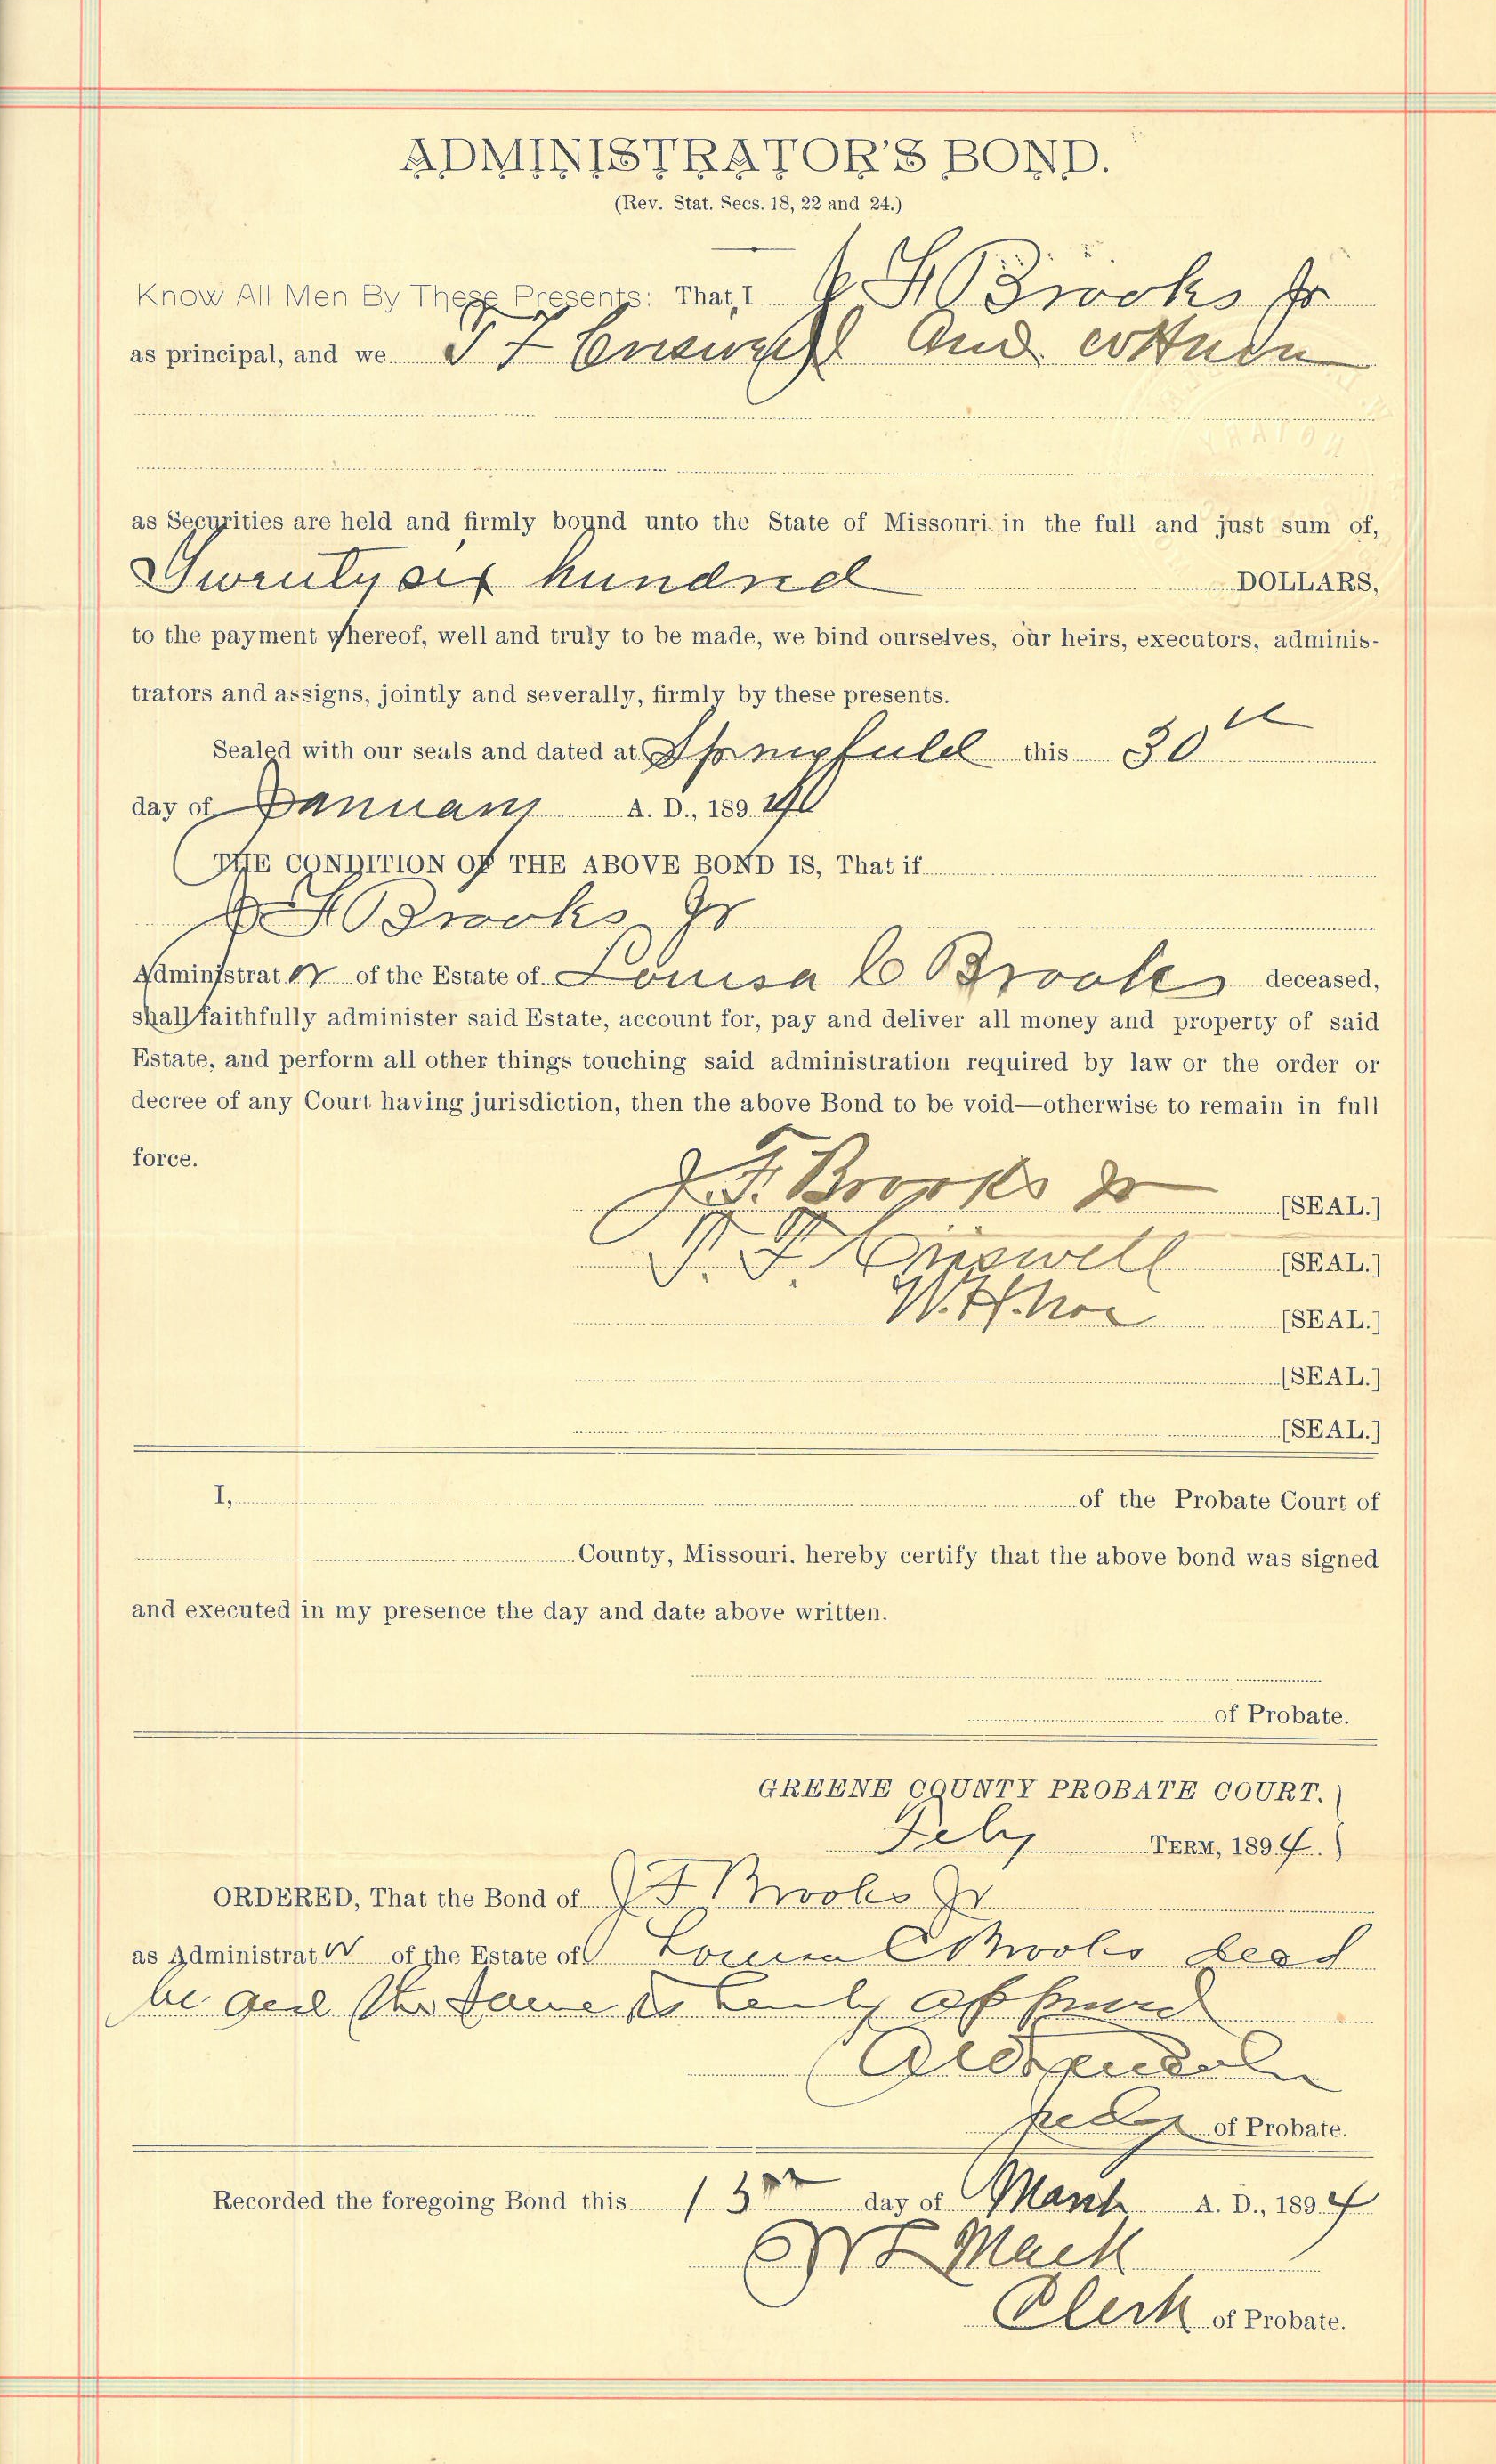 ADMINISTRATOR'S BOND.
(Rev. Stat. Secs. 18, 22 and 24.)
Know All Men By These Presents: That, I J F Brooks Jr
as principal, and we T F Criswell and
as Securities are held and firmly bound unto the State of Missouri in the full and just sum of,
Twenty six hundred DOLLARS,
to the payment whereof, well and truly to be made, we bind ourselves, our heirs, executors, adminis-
trators and assigns, jointly and severally, firmly by these presents.
Sealed with our seals and dated at Springfield this 30th
day of January A. D., 189
THE CONDITION OF THE ABOVE BOND IS, That if
J F Brooks Jr
Administrator of the Estate of Louisa C Brooks deceased,
shall faithfully administer said Estate, account for, pay and deliver all money and property of said
Estate, and perform all other things touching said administration required by law or the order or
decree of any Court having jurisdiction, then the above Bond to be void—otherwise to remain in full
force.
J. F. Brooks Jr [SEAL.]
T. F. Criswell [SEAL.]
W. H. Noe [SEAL.]
[SEAL.]
[SEAL.]
I, of the Probate Court of
County, Missouri. hereby certify that the above bond was signed
and executed in my presence the day and date above written.
of Probate.
GREENE COUNTY PROBATE COURT.
Feby TERM, 1894.
ORDERED, That the Bond of J F Brooks Jr
as Administrator of the Estate of Louisa C Brooks decd
be and the same is hereby approved
Judge of Probate.
Recorded the foregoing Bond this 13th day of March A. D., 1894
Mack
Clerk of Probate.